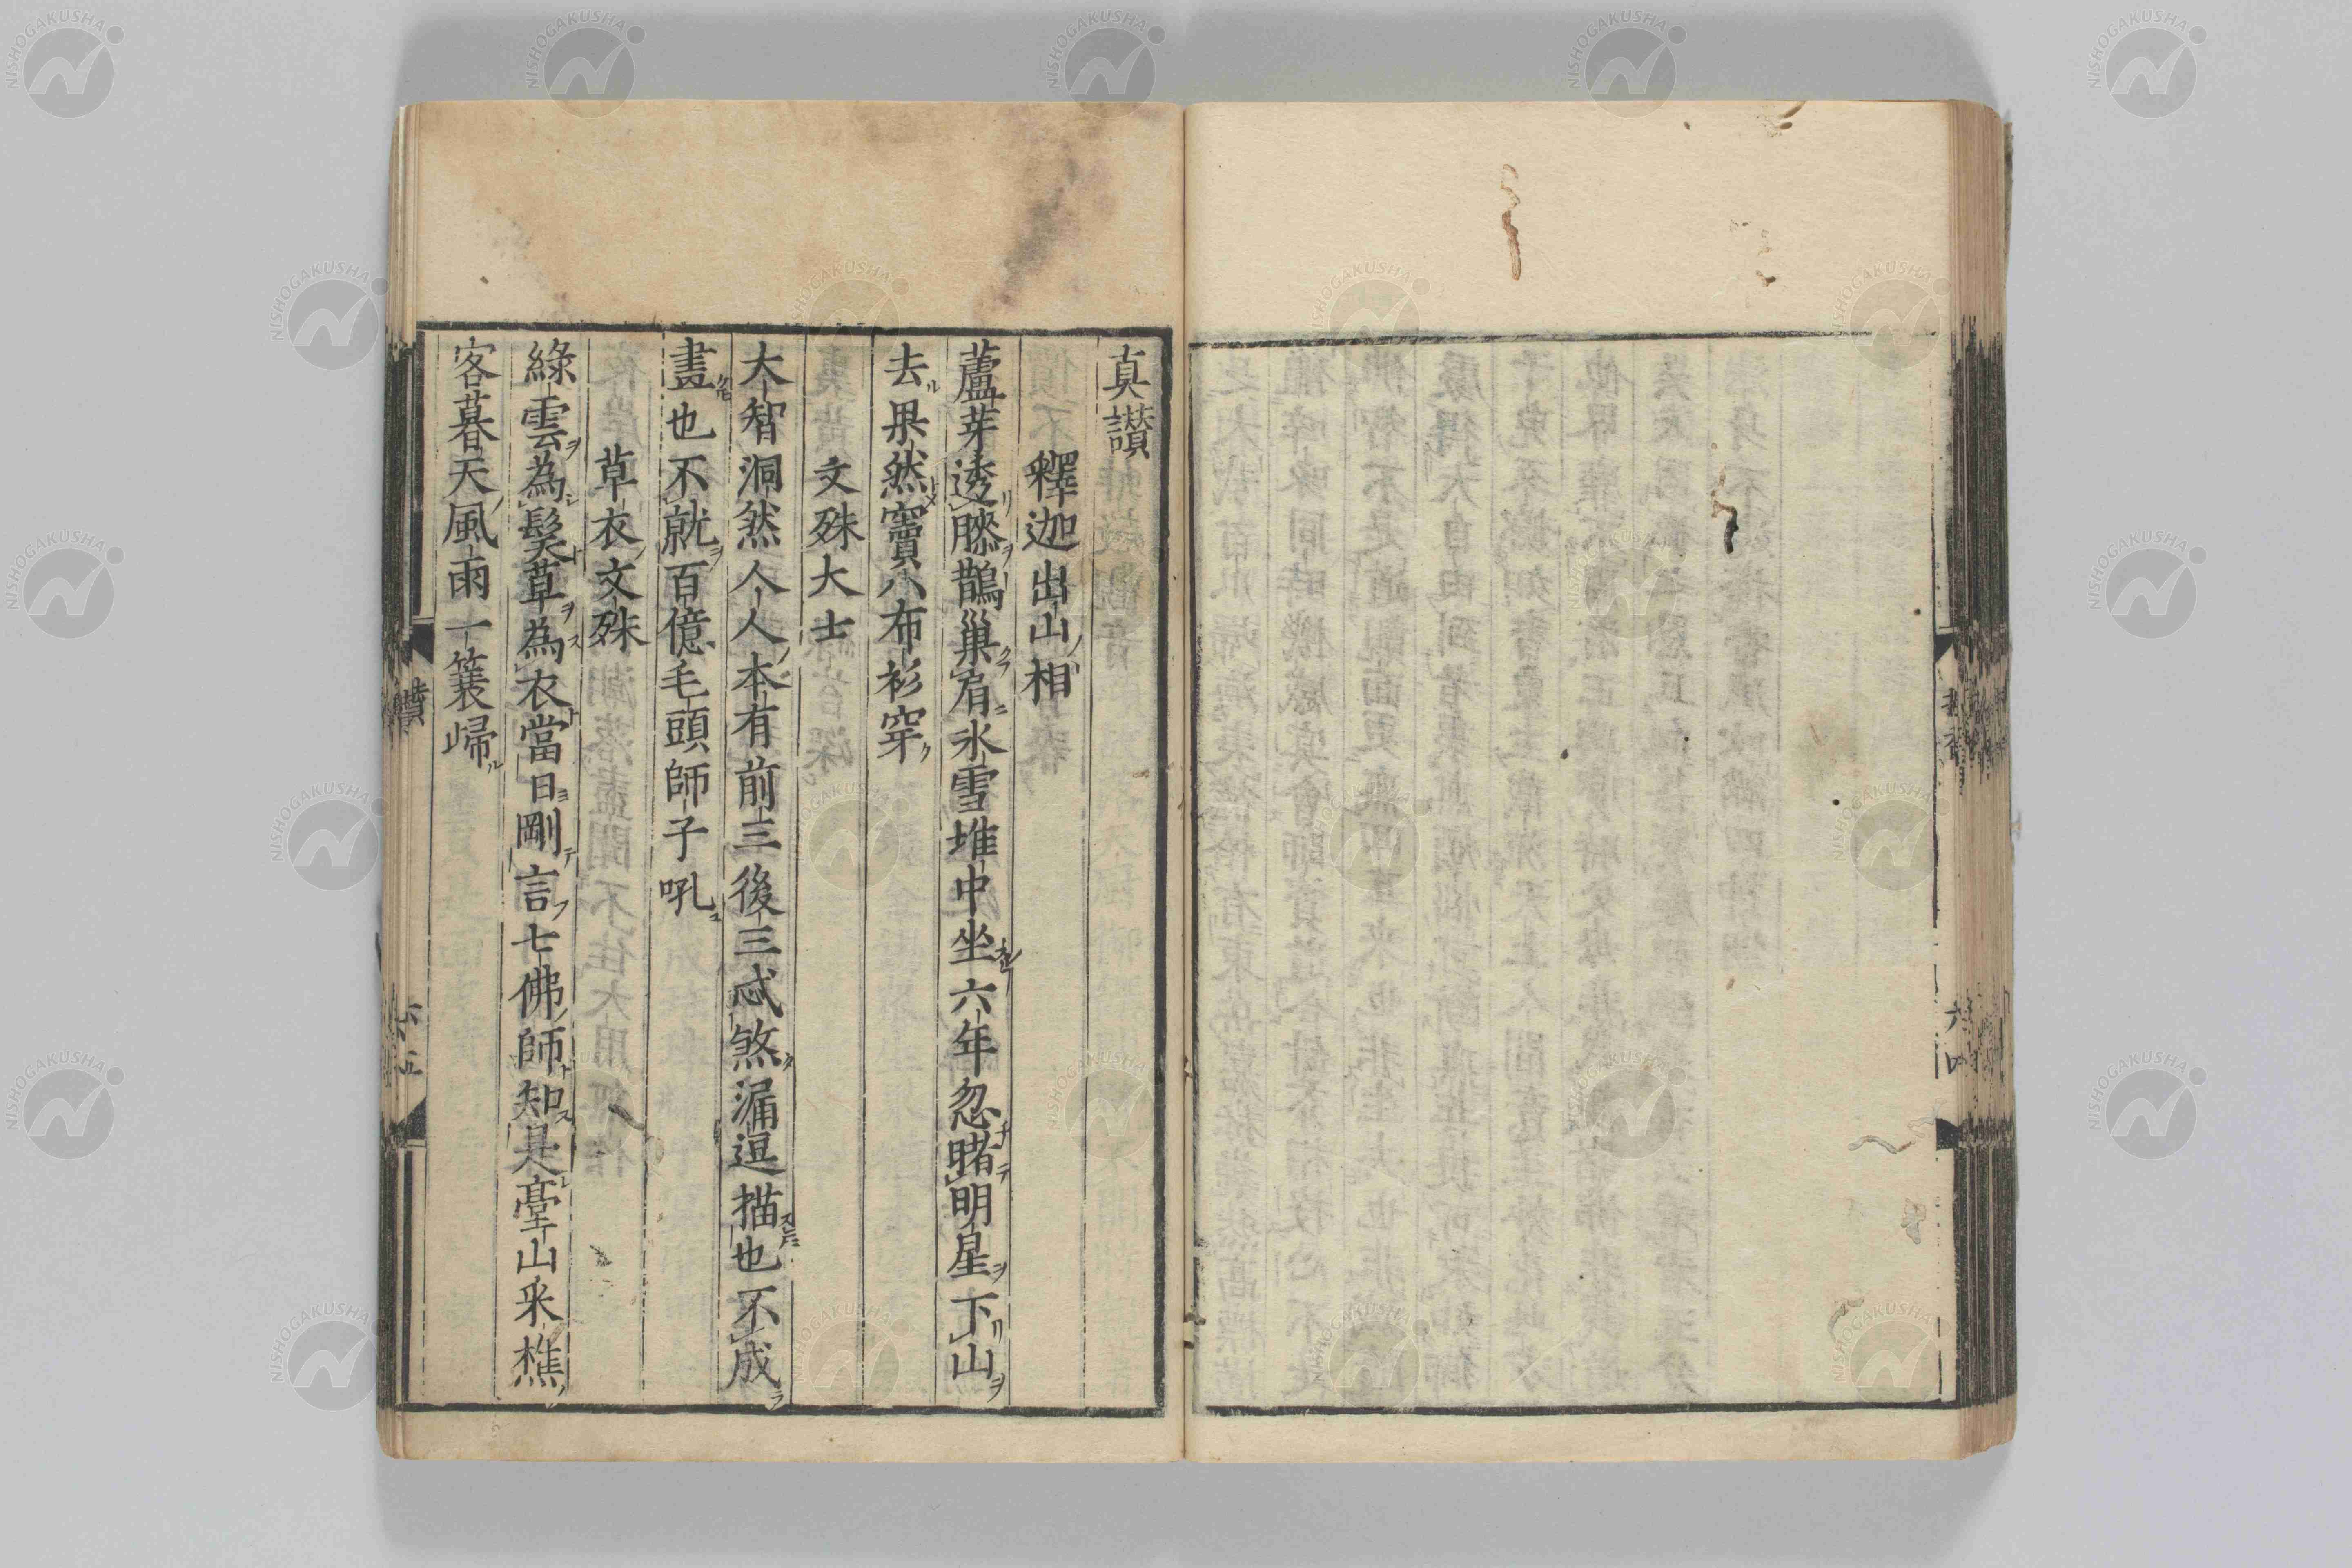 真讃
釋迦出山相
蘆芽透膝鵲巢肩氷雪堆中坐六年忽睹明星下山
去果然竇八布衫穿
文殊大士
大智洞然人人本有前三後三忒煞漏逗描也不成
畫也不就百億毛頭師子吼
草衣文殊
綠雲為髮草為衣當日剛言七佛師知是臺山采樵
客暮天風雨一蓑歸
讃
六五
六四
NISHOGAKUSHA